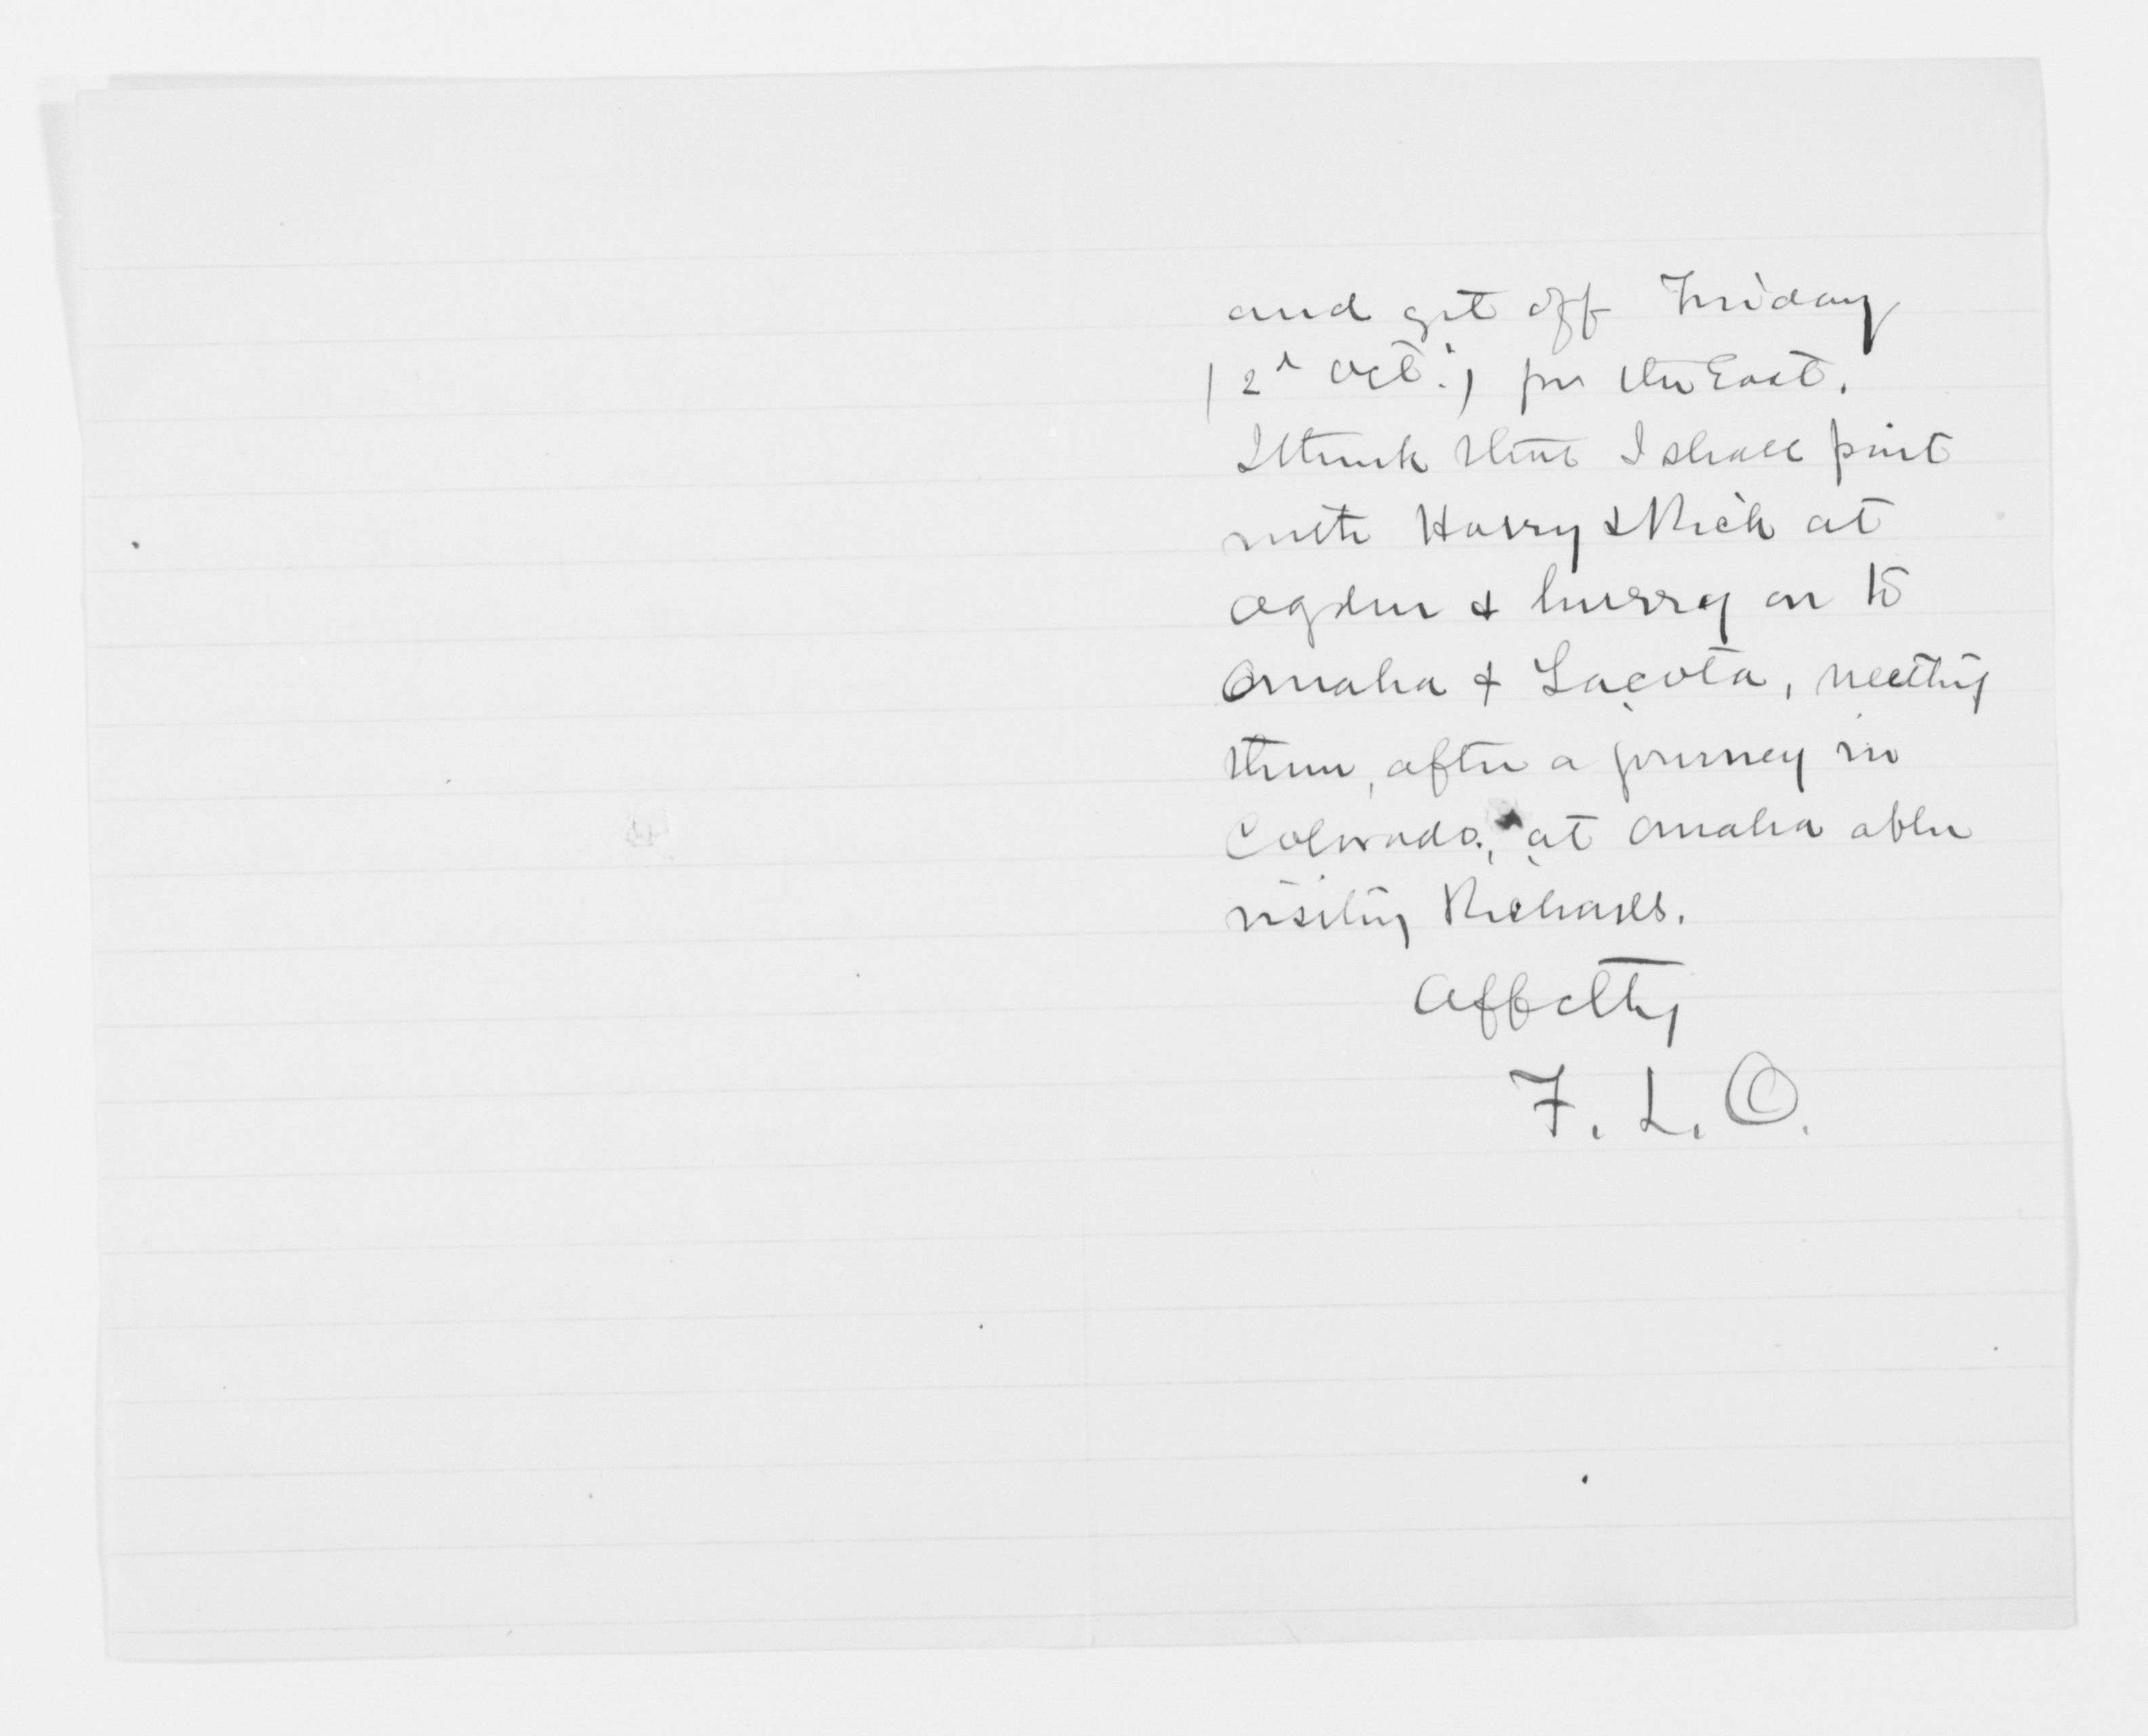 and get off Friday
(2d Oct.) for the East.
I think that I shall part
with Harry & Rick at
Ogden & hurry on to
Omaha & Lacota, meeting
them, after a journey in
Colorado, at Omaha after
visiting Richards.
Affctly
F. L. O.